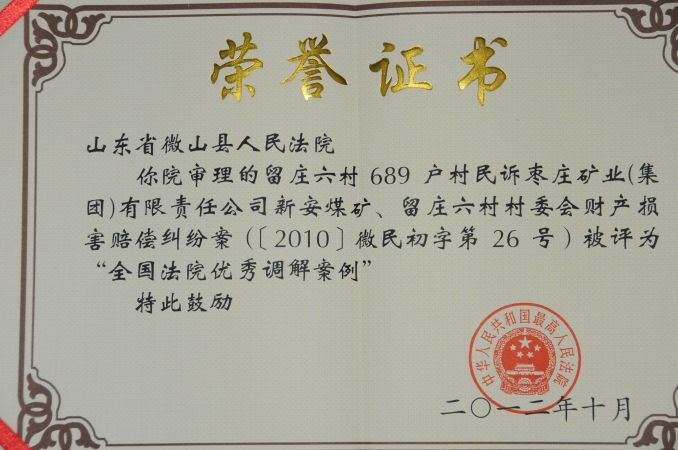 荣誉证书
山东省微山县人民法院
你院审理的留庄六村 689 户村民诉枣庄矿业(集
团)有限责任公司新安煤矿、留庄六村村委会财产损
害赔偿纠纷案(〔2010〕微民初字第 26 号)被评为
“全国法院优秀调解案例”
特此鼓励
中华人民共和国最高人民法院
二〇一二年十月